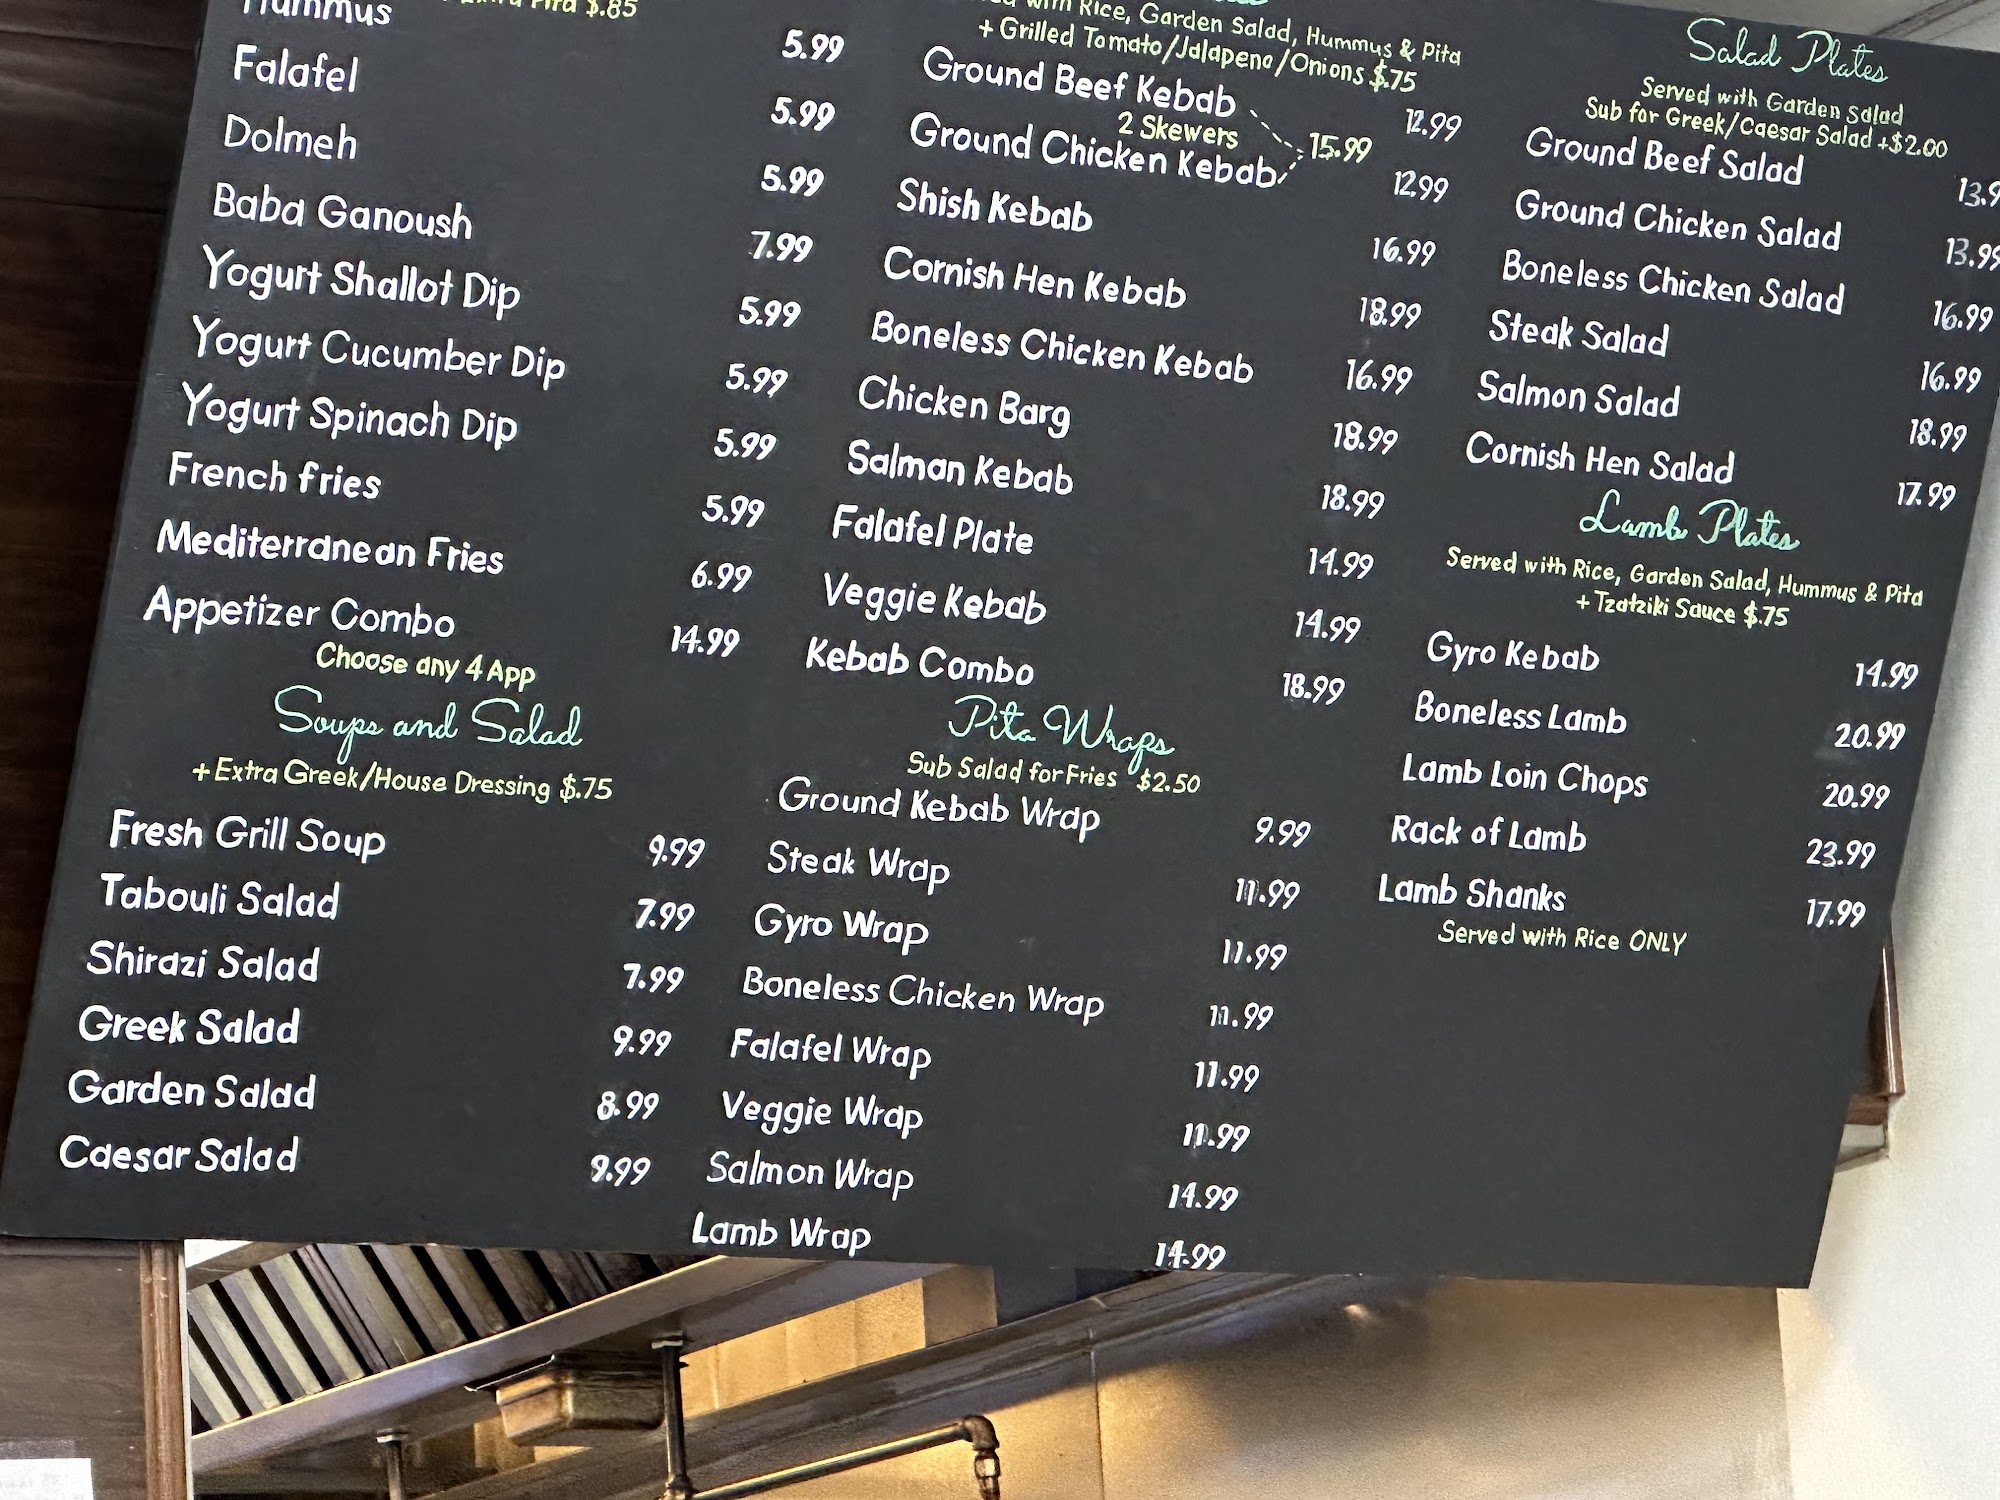 + Extra Pita $.85
Hummus 5.99
Falafel 5.99
Dolmeh 5.99
Baba Ganoush 7.99
Yogurt Shallot Dip 5.99
Yogurt Cucumber Dip 5.99
Yogurt Spinach Dip 5.99
French fries 5.99
Mediterranean Fries 6.99
Appetizer Combo 14.99
Choose any 4 App
Soups and Salad
+ Extra Greek/House Dressing $.75
Fresh Grill Soup 9.99
Tabouli Salad 7.99
Shirazi Salad 7.99
Greek Salad 9.99
Garden Salad 8.99
Caesar Salad 9.99
with Rice, Garden Salad, Hummus & Pita
+ Grilled Tomato/Jalapeno/Onions $.75
Ground Beef Kebab 12.99
2 Skewers 15.99
Ground Chicken Kebab 12.99
Shish Kebab 16.99
Cornish Hen Kebab 18.99
Boneless Chicken Kebab 16.99
Chicken Barg 18.99
Salman Kebab 18.99
Falafel Plate 14.99
Veggie Kebab 14.99
Kebab Combo 18.99
Pita Wraps
Sub Salad for Fries $2.50
Ground Kebab Wrap 9.99
Steak Wrap 11.99
Gyro Wrap 11.99
Boneless Chicken Wrap 11.99
Falafel Wrap 11.99
Veggie Wrap 11.99
Salmon Wrap 14.99
Lamb Wrap 14.99
Salad Plates
Served with Garden Salad
Sub for Greek/Caesar Salad +$2.00
Ground Beef Salad 13.9
Ground Chicken Salad 13.99
Boneless Chicken Salad 16.99
Steak Salad 16.99
Salmon Salad 18.99
Cornish Hen Salad 17.99
Lamb Plates
Served with Rice, Garden Salad, Hummus & Pita
+ Tzatziki Sauce $.75
Gyro Kebab 14.99
Boneless Lamb 20.99
Lamb Loin Chops 20.99
Rack of Lamb 23.99
Lamb Shanks 17.99
Served with Rice ONLY